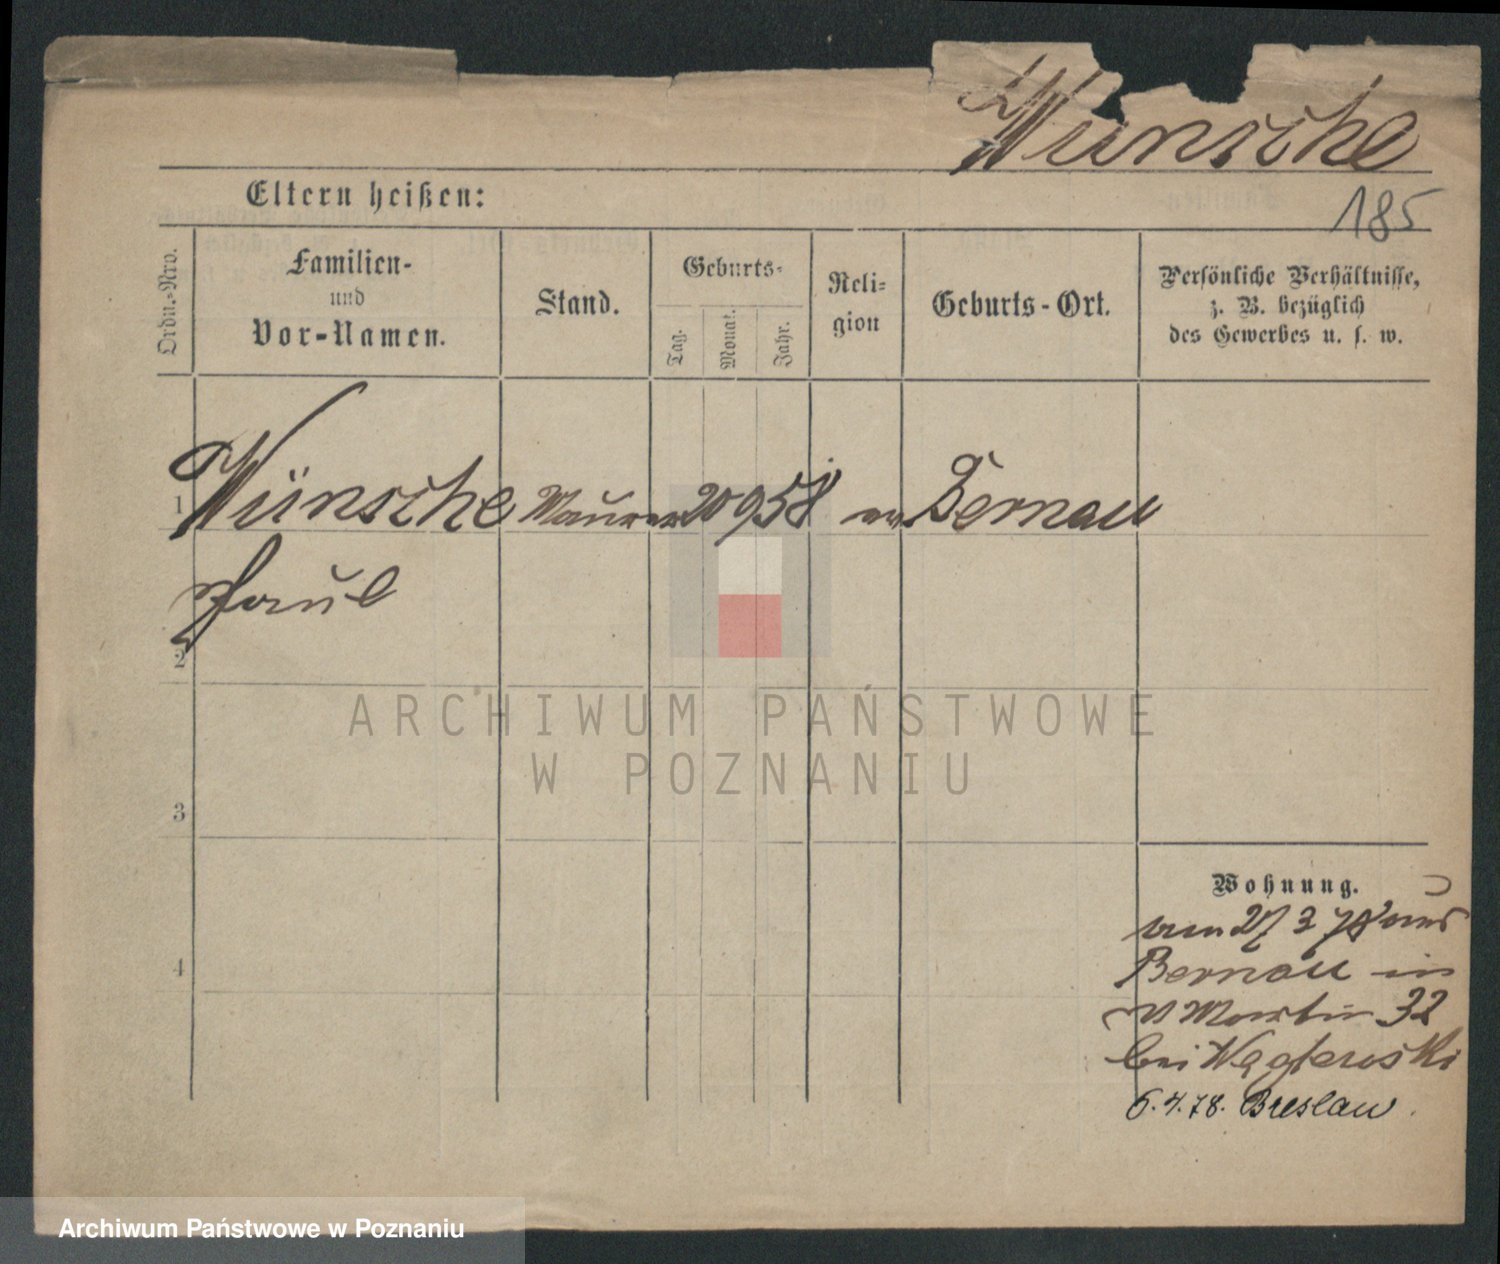 Wünsche
185
Eltern heißen:
Ordn.-Nro.
Familien-
und
Vor-Namen.
Stand.
Geburts-
Tag.
Monat.
Jahr.
Reli-
gion
Geburts-Ort.
Persönliche Verhältnisse,
z. B. bezüglich
des Gewerbes u. s. w.
1 Wünsche Maurer 20 9 58 ev Bernau
Paul
2
ARCHIWUM PAŃSTWOWE
W POZNANIU
3
Wohnung.
27 3 78 aus
4
Bernau in
Martin 32
bei
6.4.78. Breslau.
Archiwum Państwowe w Poznaniu